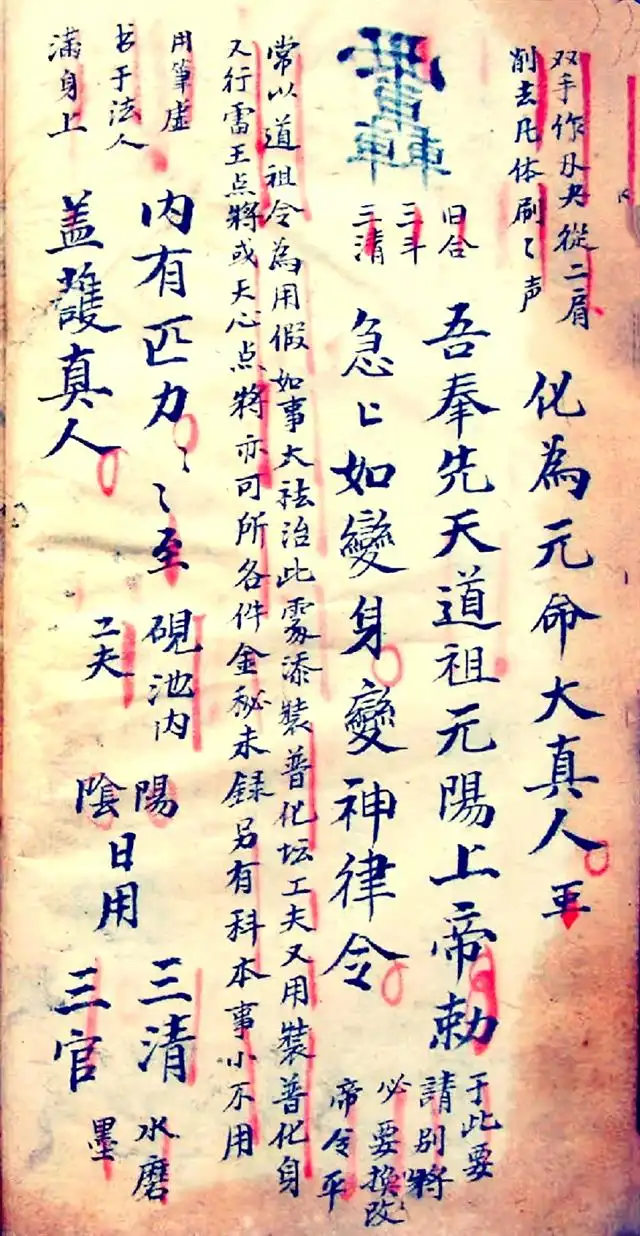 双手作 從二肩
削去凡体刷〻声
化為元命大真人 至
旧合
三斗
三清
吾奉先天道祖元陽上帝勅
于此要
請别將
急〻如變身變神律令
必要换改
帝令平
常以道祖令為用假如事大祛治此處添裝普化坛工夫又用裝普化身
又行雷王点將或天心点將亦可所各件金秘未録另有科本事小不用
用筆虚
书于法人
滿身上
内有匹力〻〻至
蓋護真人
硯池内
工夫
陽
陰
日用
三清
三官
水磨
墨